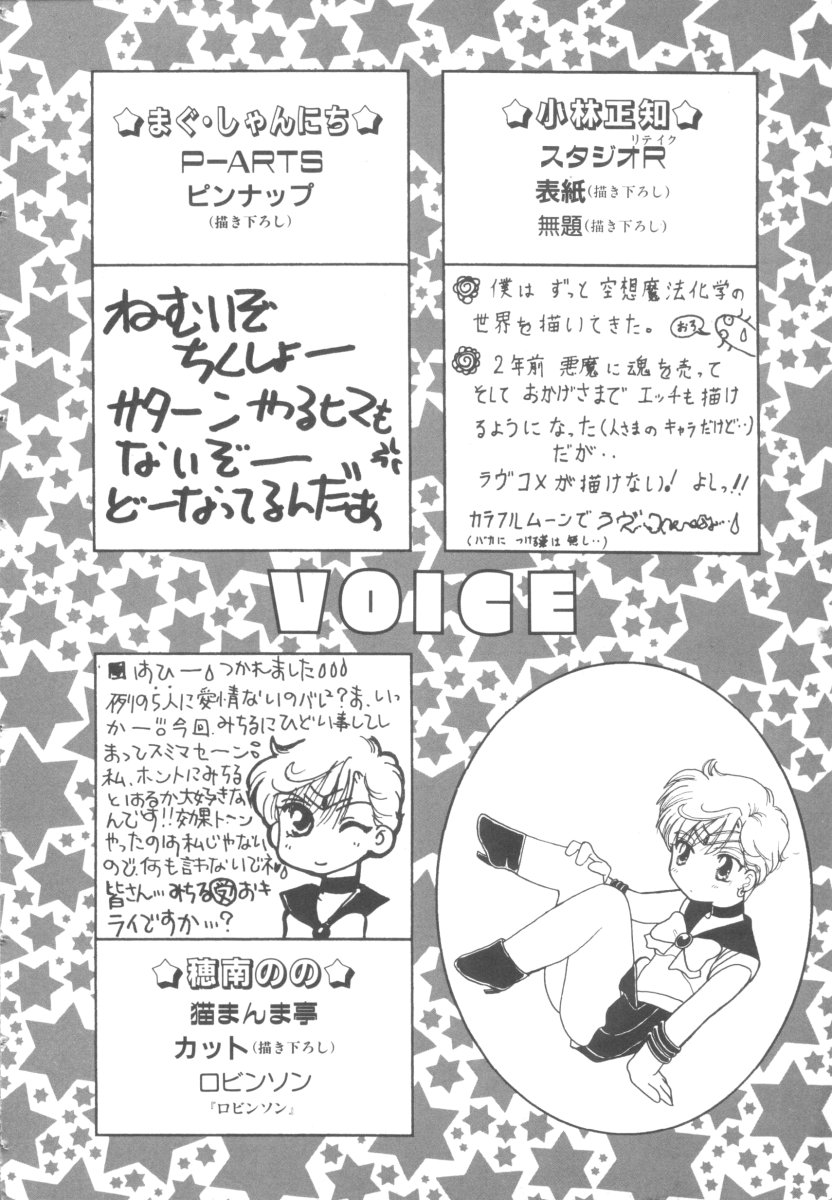 ☆まぐ・しゃんにち☆
P-ARTS
ピンナップ
(描き下ろし)
ねむいぞ
ちくしょー
サターンやるヒマも
ないぞー
どーなってるんだぁ
☆小林正知☆
リテイク
スタジオR
表紙(描き下ろし)
無題(描き下ろし)
僕は ずっと 空想魔法化学の
世界を描いてきた。 おろ~
2年前 悪魔に魂を売って
そして おかげさまで エッチも描け
るように なった(人さまの キャラだけど‥)
だが‥
ラヴコメが描けない! よしっ!!
カラフルムーンで
(バカに つける薬は 無し‥)
VOICE
はひー つかれました
例の5人に愛情ないのバレ?ま、いっ
かー!!今回、みちるにひどい事してし
まってスミマセーン
私、ホントにみちる
とはるか大好きな
んです!!効果トーン
やったのは私じゃない
ので、何も言わないでネ
皆さん…みちる受おき
ライですか…?
☆穂南のの☆
猫まんま亭
カット(描き下ろし)
ロビンソン
『ロビンソン』